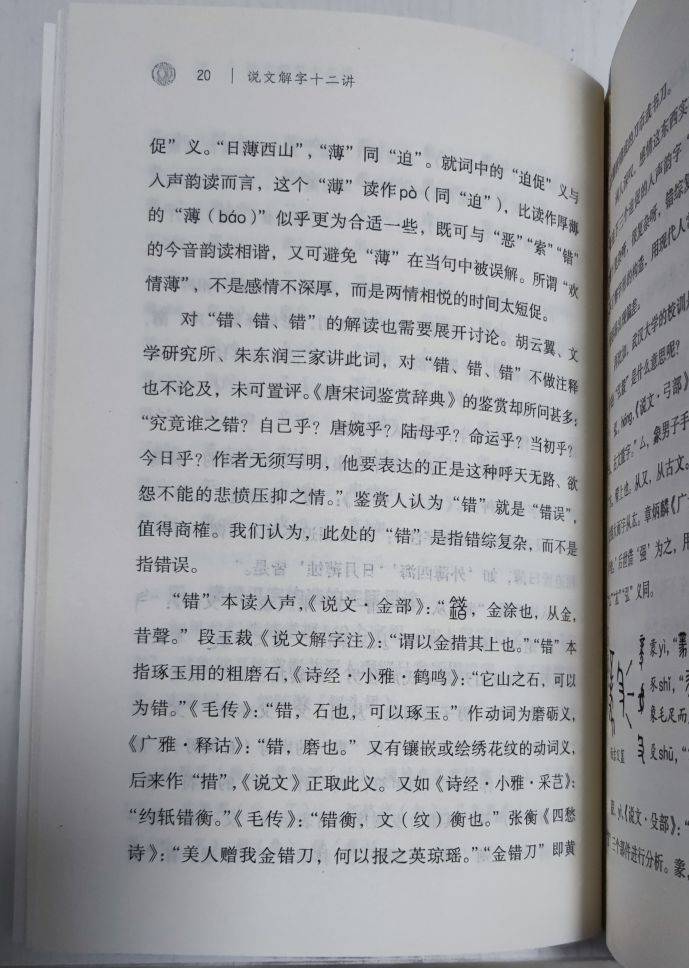 20 | 说文解字十二讲
促”义。“日薄西山”，“薄”同“迫”。就词中的“迫促”义与
入声韵读而言，这个“薄”读作pò（同“迫”），比读作厚薄
的“薄（báo）”似乎更为合适一些，既可与“恶”“索”“错”
的今音韵读相谐，又可避免“薄”在当句中被误解。所谓“欢
情薄”，不是感情不深厚，而是两情相悦的时间太短促。
对“错、错、错”的解读也需要展开讨论。胡云翼、文
学研究所、朱东润三家讲此词，对“错、错、错”不做注释
也不论及，未可置评。《唐宋词鉴赏辞典》的鉴赏却所问甚多：
“究竟谁之错？自己乎？唐婉乎？陆母乎？命运乎？当初乎？
今日乎？作者无须写明，他要表达的正是这种呼天无路、欲
怨不能的悲愤压抑之情。”鉴赏人认为“错”就是“错误”，
值得商榷。我们认为，此处的“错”是指错综复杂，而不是
指错误。
“错”本读入声，《说文·金部》：“錯，金涂也，从金，
昔聲。”段玉裁《说文解字注》：“谓以金措其上也。”“错”本
指琢玉用的粗磨石，《诗经·小雅·鹤鸣》：“它山之石，可以
为错。”《毛传》：“错，石也，可以琢玉。”作动词为磨砺义，
《广雅·释诂》：“错，磨也。”又有镶嵌或绘绣花纹的动词义，
后来作“措”，《说文》正取此义。又如《诗经·小雅·采芑》：
“约軧错衡。”《毛传》：“错衡，文（纹）衡也。”张衡《四愁
诗》：“美人赠我金错刀，何以报之英琼瑶。”“金错刀”即黄
武汉大学的校训
是什么意思呢？
《说文·弓部》
象男子手
从又，从古文。
章炳麟《广
后世借“强”为之，用
义同。
豙yì，“
豕shǐ，“
象毛足而
殳shū，“
《说文·殳部》：“
三个部件进行分析。